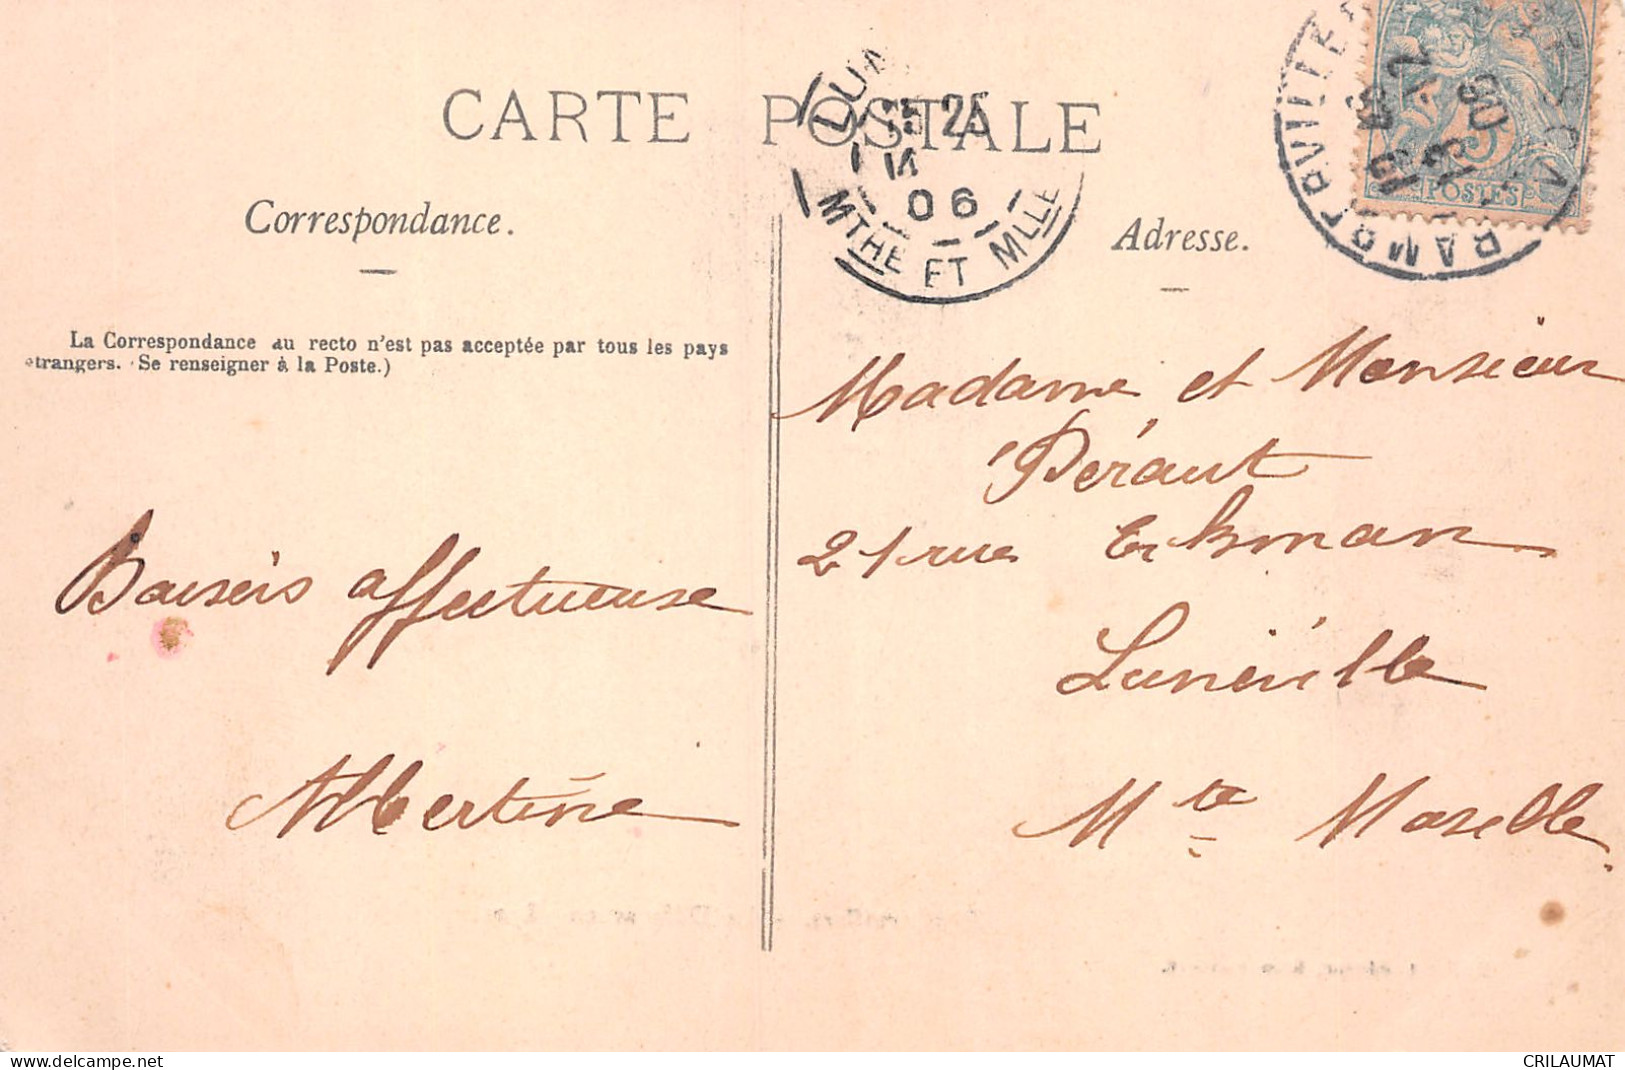 CARTE POSTALE
LUN
15 25
14
06
MTHE ET MLLE
RAMBERVILLERS
VOSGES
5
POSTES
Correspondance.
Adresse.
La Correspondance au recto n'est pas acceptée par tous les pays
étrangers. (Se renseigner à la Poste.)
Madame et Monsieur
Péraut
21 rue Erkman
Lunéville
Mthe Moselle
Baisers affectueuse
Albertine
delcampe.net
CRILAUMAT